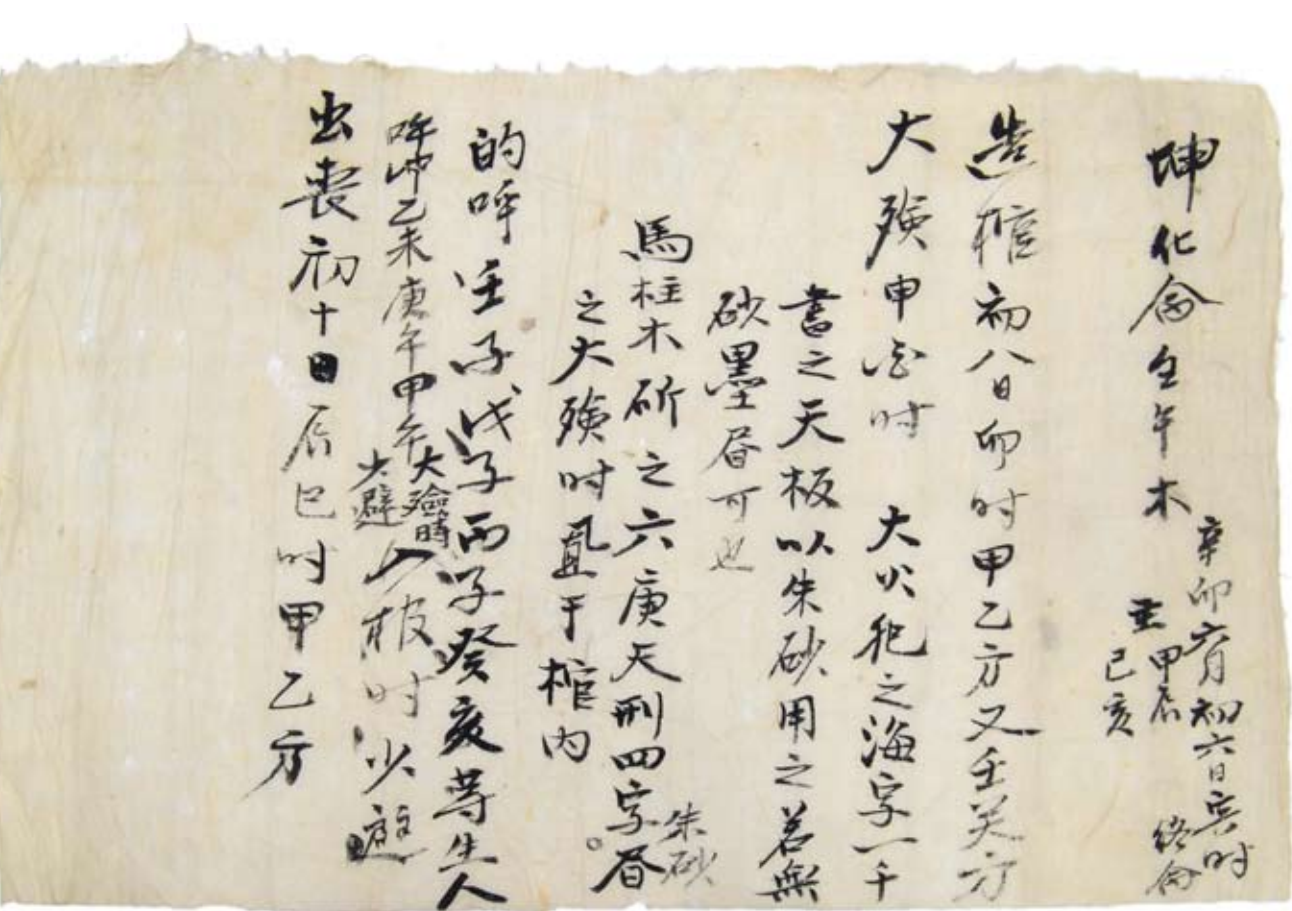 坤化命壬午木
辛卯六月初六日寅时
终命
甲辰
己亥
造棺初八日卯时甲乙方又壬癸方
大殡申酉时 大火犯之海字一千
書之天板以朱砂用之若無
砂墨書可也
馬柱木斫之六庚天刑四字書
朱砂
之大殡时置于棺内
的呼壬子戊子丙子癸亥等生人
呼冲乙未庚午甲午
大殮時
少避
入棺时少避
出喪初十日辰巳时甲乙方